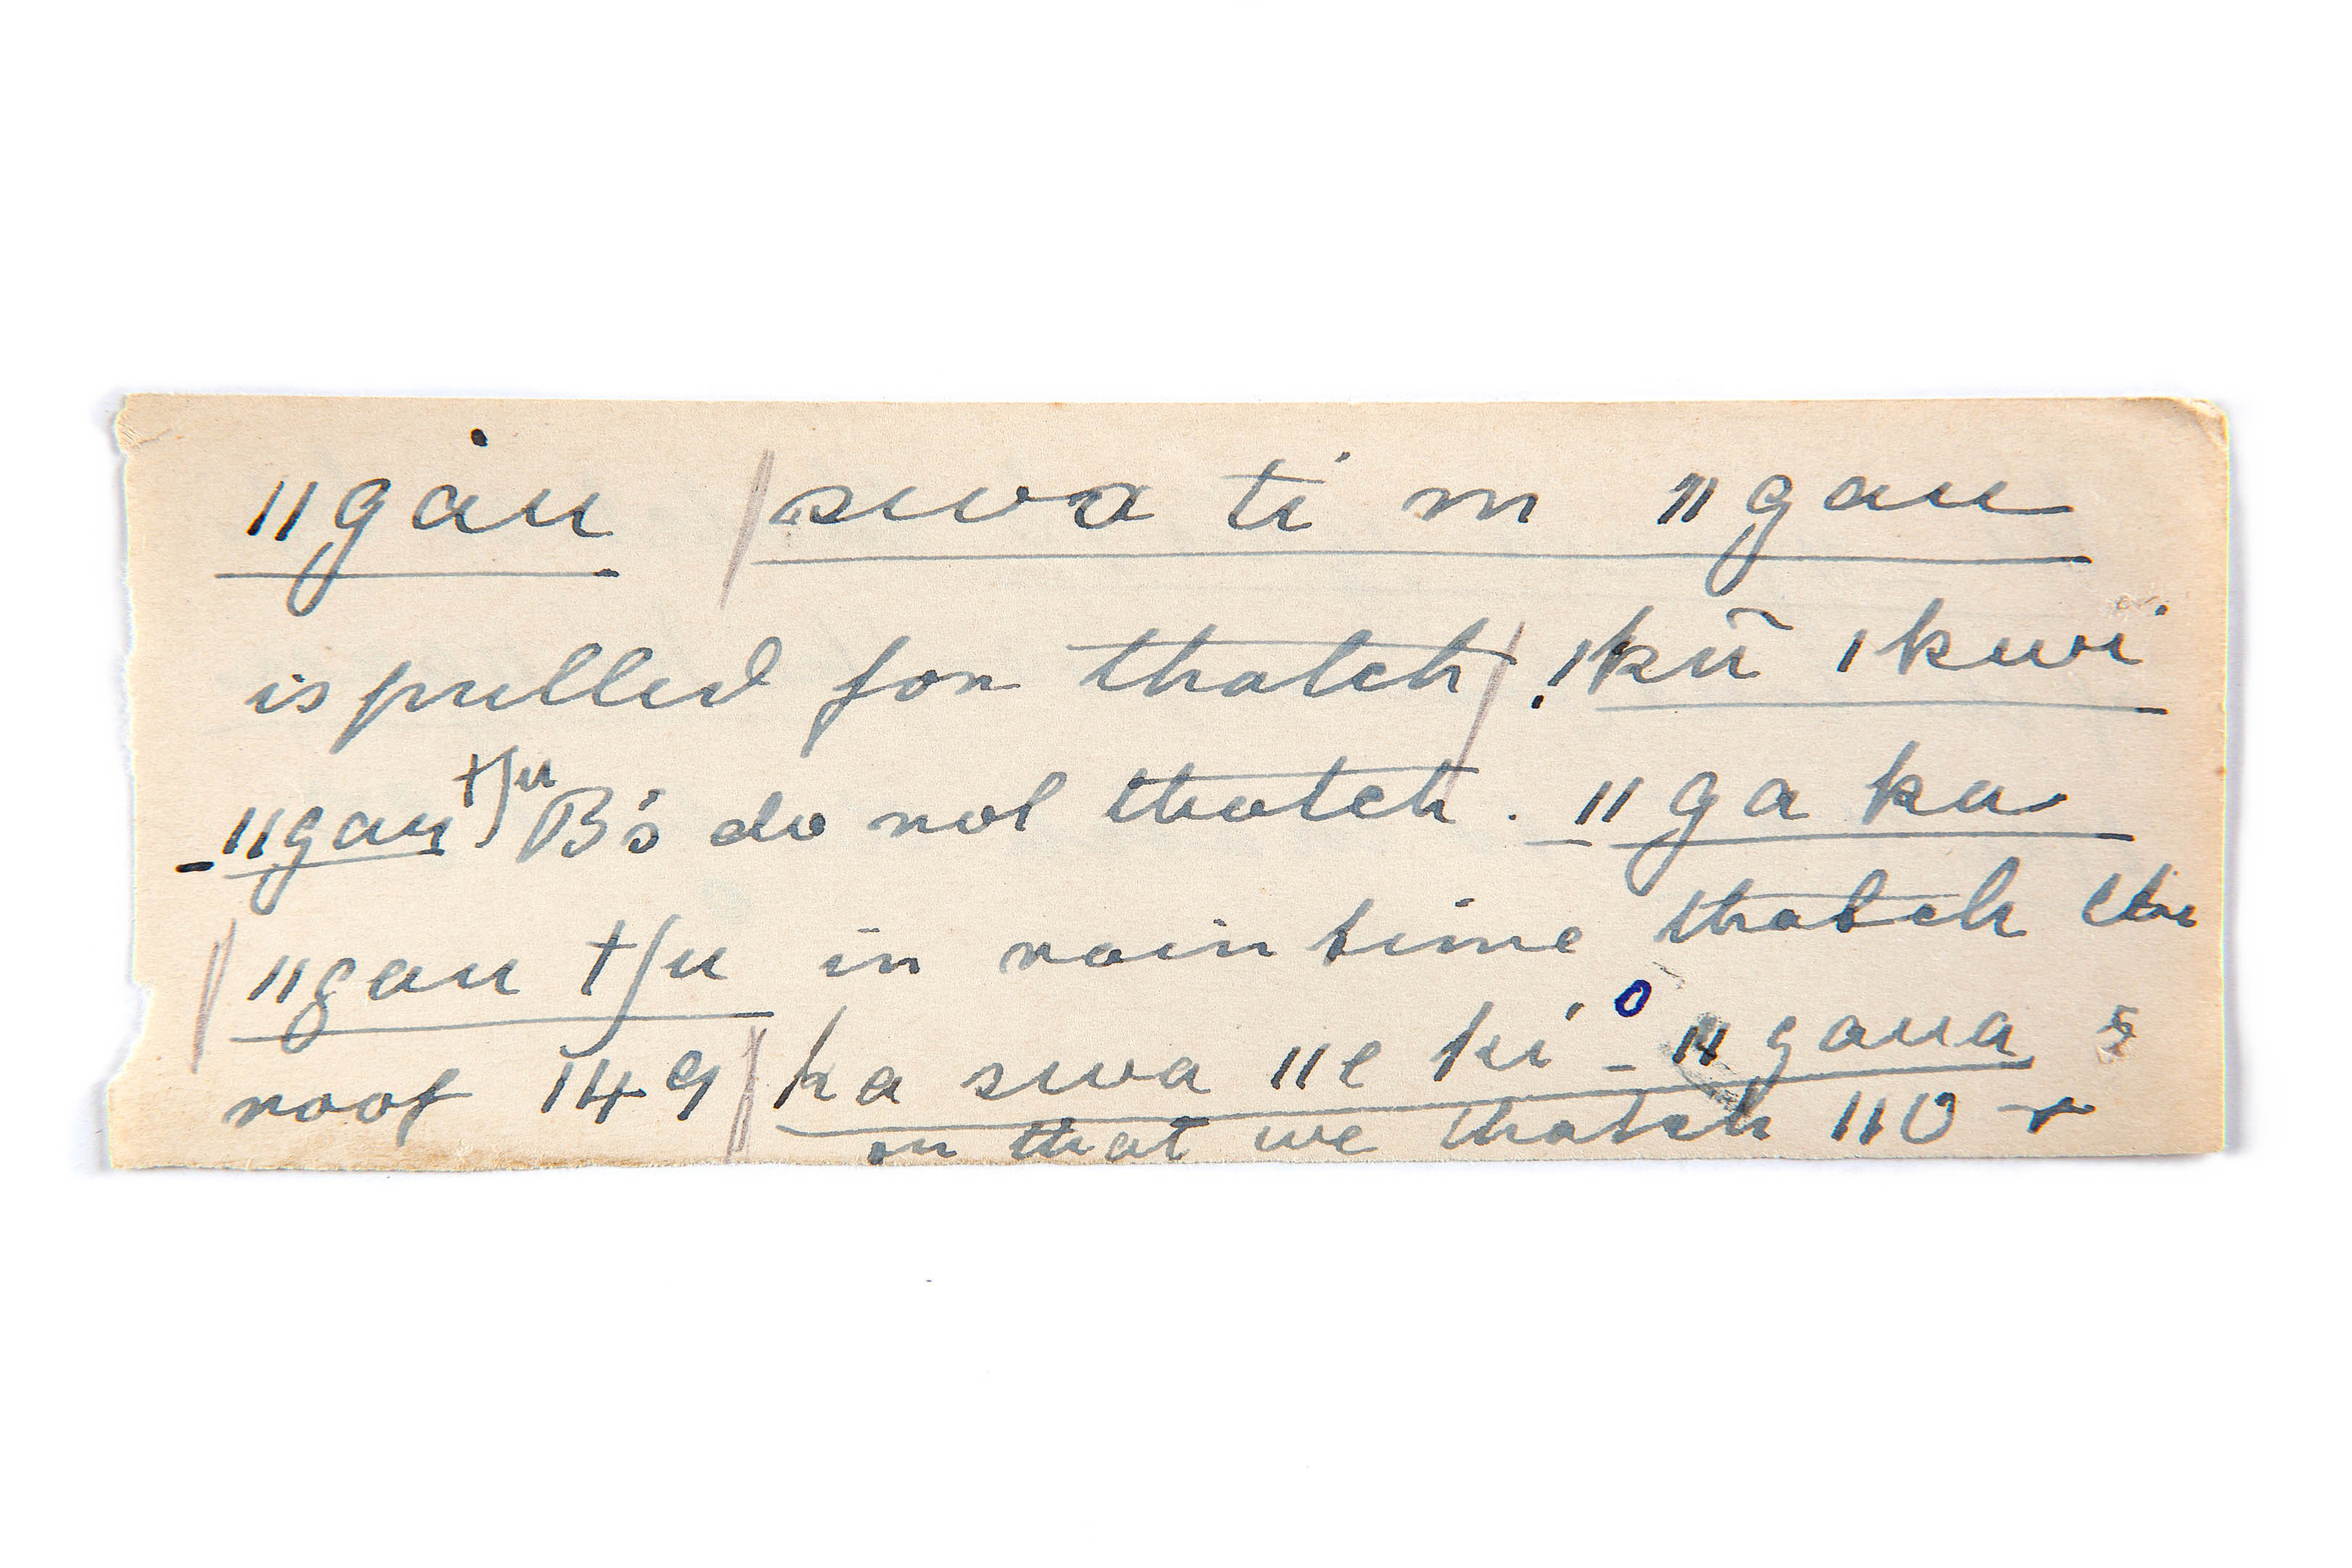 ǁgȧu / swa ti m ǁgau
is pulled for thatch / !kũ ǀkwi
-ǁgau tʃu B's do not thatch. ǁga ka
/ ǁgau tʃu in rain time thatch the
roof 149 / ha swa ǁe ki - ǁgaua
on that we thatch ǁo r